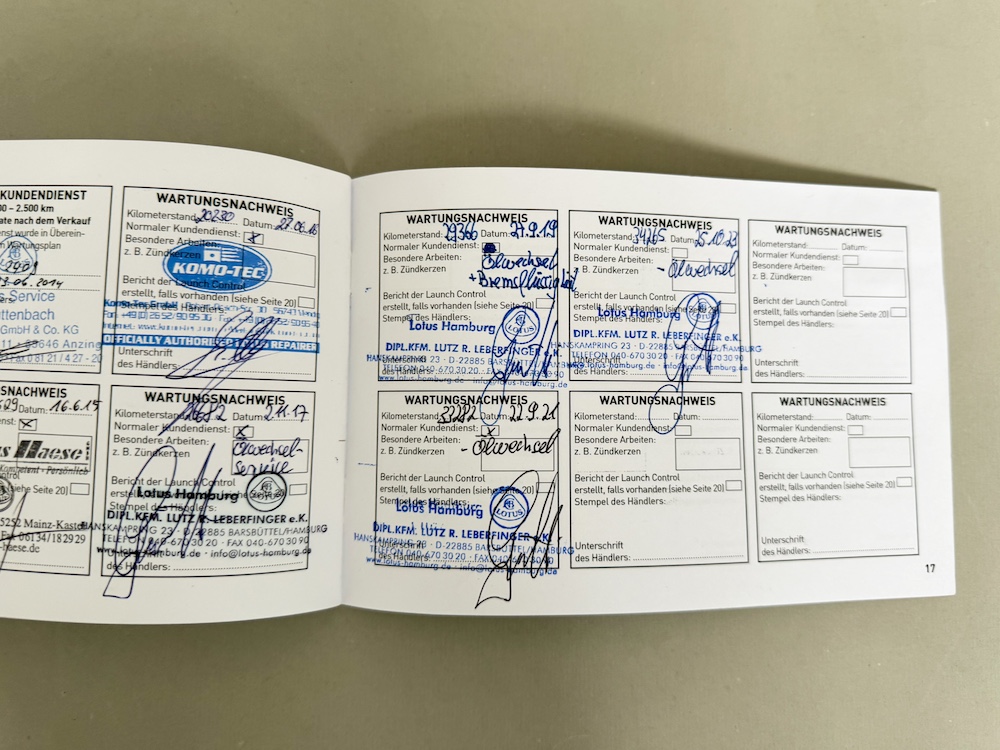 KUNDENDIENST
0 – 2.500 km
ate nach dem Verkauf
enst wurde in Überein-
Wartungsplan
.06.2014
s Service
ttenbach
GmbH & Co. KG
11 · 85646 Anzing
Fax 0 81 21 / 4 27 - 20
SNACHWEIS
Datum: 16.6.15
nst: x
s Haese
Kompetent · Persönlich
ntrol
siehe Seite 20)
55252 Mainz-Kastel
Fax 06134 / 18 29 29
-haese.de
WARTUNGSNACHWEIS
Kilometerstand: 20230 Datum: 27.06.16
Normaler Kundendienst: x
Besondere Arbeiten:
z. B. Zündkerzen
KOMO-TEC
Bericht der Launch Control
erstellt, falls vorhanden (siehe Seite 20)
Stempel des Händlers:
OFFICIALLY AUTHORISED LOTUS REPAIRER
Unterschrift
des Händlers:
WARTUNGSNACHWEIS
Kilometerstand: Datum: 2.11.17
Normaler Kundendienst: x
Besondere Arbeiten: Ölwechsel-
z. B. Zündkerzen Service
Bericht der Launch Control
erstellt, falls vorhanden (siehe Seite 20)
Lotus Hamburg
DIPL.KFM. LUTZ R. LEBERFINGER e.K.
HANSKAMPRING 23 · D-22885 BARSBÜTTEL/HAMBURG
TELEFON 040-670 30 20 · FAX 040-670 30 90
www.lotus-hamburg.de · info@lotus-hamburg.de
des Händlers:
WARTUNGSNACHWEIS
Kilometerstand: 29366 Datum: 27.9.19
Normaler Kundendienst:
Besondere Arbeiten: Ölwechsel
z. B. Zündkerzen + Bremsflüssigkeit
Bericht der Launch Control
erstellt, falls vorhanden (siehe Seite 20)
Stempel des Händlers:
Lotus Hamburg
LOTUS
DIPL.KFM. LUTZ R. LEBERFINGER e.K.
HANSKAMPRING 23 · D-22885 BARSBÜTTEL/HAMBURG
Unterschrift
TELEFON 040-670 30 20 · FAX 040-670 30 90
www.lotus-hamburg.de · info@lotus-hamburg.de
WARTUNGSNACHWEIS
Kilometerstand: Datum: 22.9.21
Normaler Kundendienst: x
Besondere Arbeiten: - Ölwechsel
z. B. Zündkerzen
Bericht der Launch Control
erstellt, falls vorhanden (siehe Seite 20)
Stempel des Händlers:
Lotus Hamburg
LOTUS
DIPL.KFM. LUTZ R. LEBERFINGER e.K.
HANSKAMPRING 23 · D-22885 BARSBÜTTEL/HAMBURG
TELEFON 040-670 30 20 · FAX 040-670 30 90
des Händlers:
www.lotus-hamburg.de · info@lotus-hamburg.de
WARTUNGSNACHWEIS
Kilometerstand: 34265 Datum: 25.10.23
Normaler Kundendienst:
Besondere Arbeiten: - Ölwechsel
z. B. Zündkerzen
Bericht der Launch Control
erstellt, falls vorhanden (siehe Seite 20)
Stempel des Händlers:
Lotus Hamburg
DIPL.KFM. LUTZ R. LEBERFINGER e.K.
HANSKAMPRING 23 · D-22885 BARSBÜTTEL/HAMBURG
TELEFON 040-670 30 20 · FAX 040-670 30 90
www.lotus-hamburg.de · info@lotus-hamburg.de
des Händlers:
WARTUNGSNACHWEIS
Kilometerstand: Datum:
Normaler Kundendienst:
Besondere Arbeiten:
z. B. Zündkerzen
Bericht der Launch Control
erstellt, falls vorhanden (siehe Seite 20)
Stempel des Händlers:
Unterschrift
des Händlers:
WARTUNGSNACHWEIS
Kilometerstand: Datum:
Normaler Kundendienst:
Besondere Arbeiten:
z. B. Zündkerzen
Bericht der Launch Control
erstellt, falls vorhanden (siehe Seite 20)
Stempel des Händlers:
Unterschrift
des Händlers:
WARTUNGSNACHWEIS
Kilometerstand: Datum:
Normaler Kundendienst:
Besondere Arbeiten:
z. B. Zündkerzen
Bericht der Launch Control
erstellt, falls vorhanden (siehe Seite 20)
Stempel des Händlers:
Unterschrift
des Händlers:
17